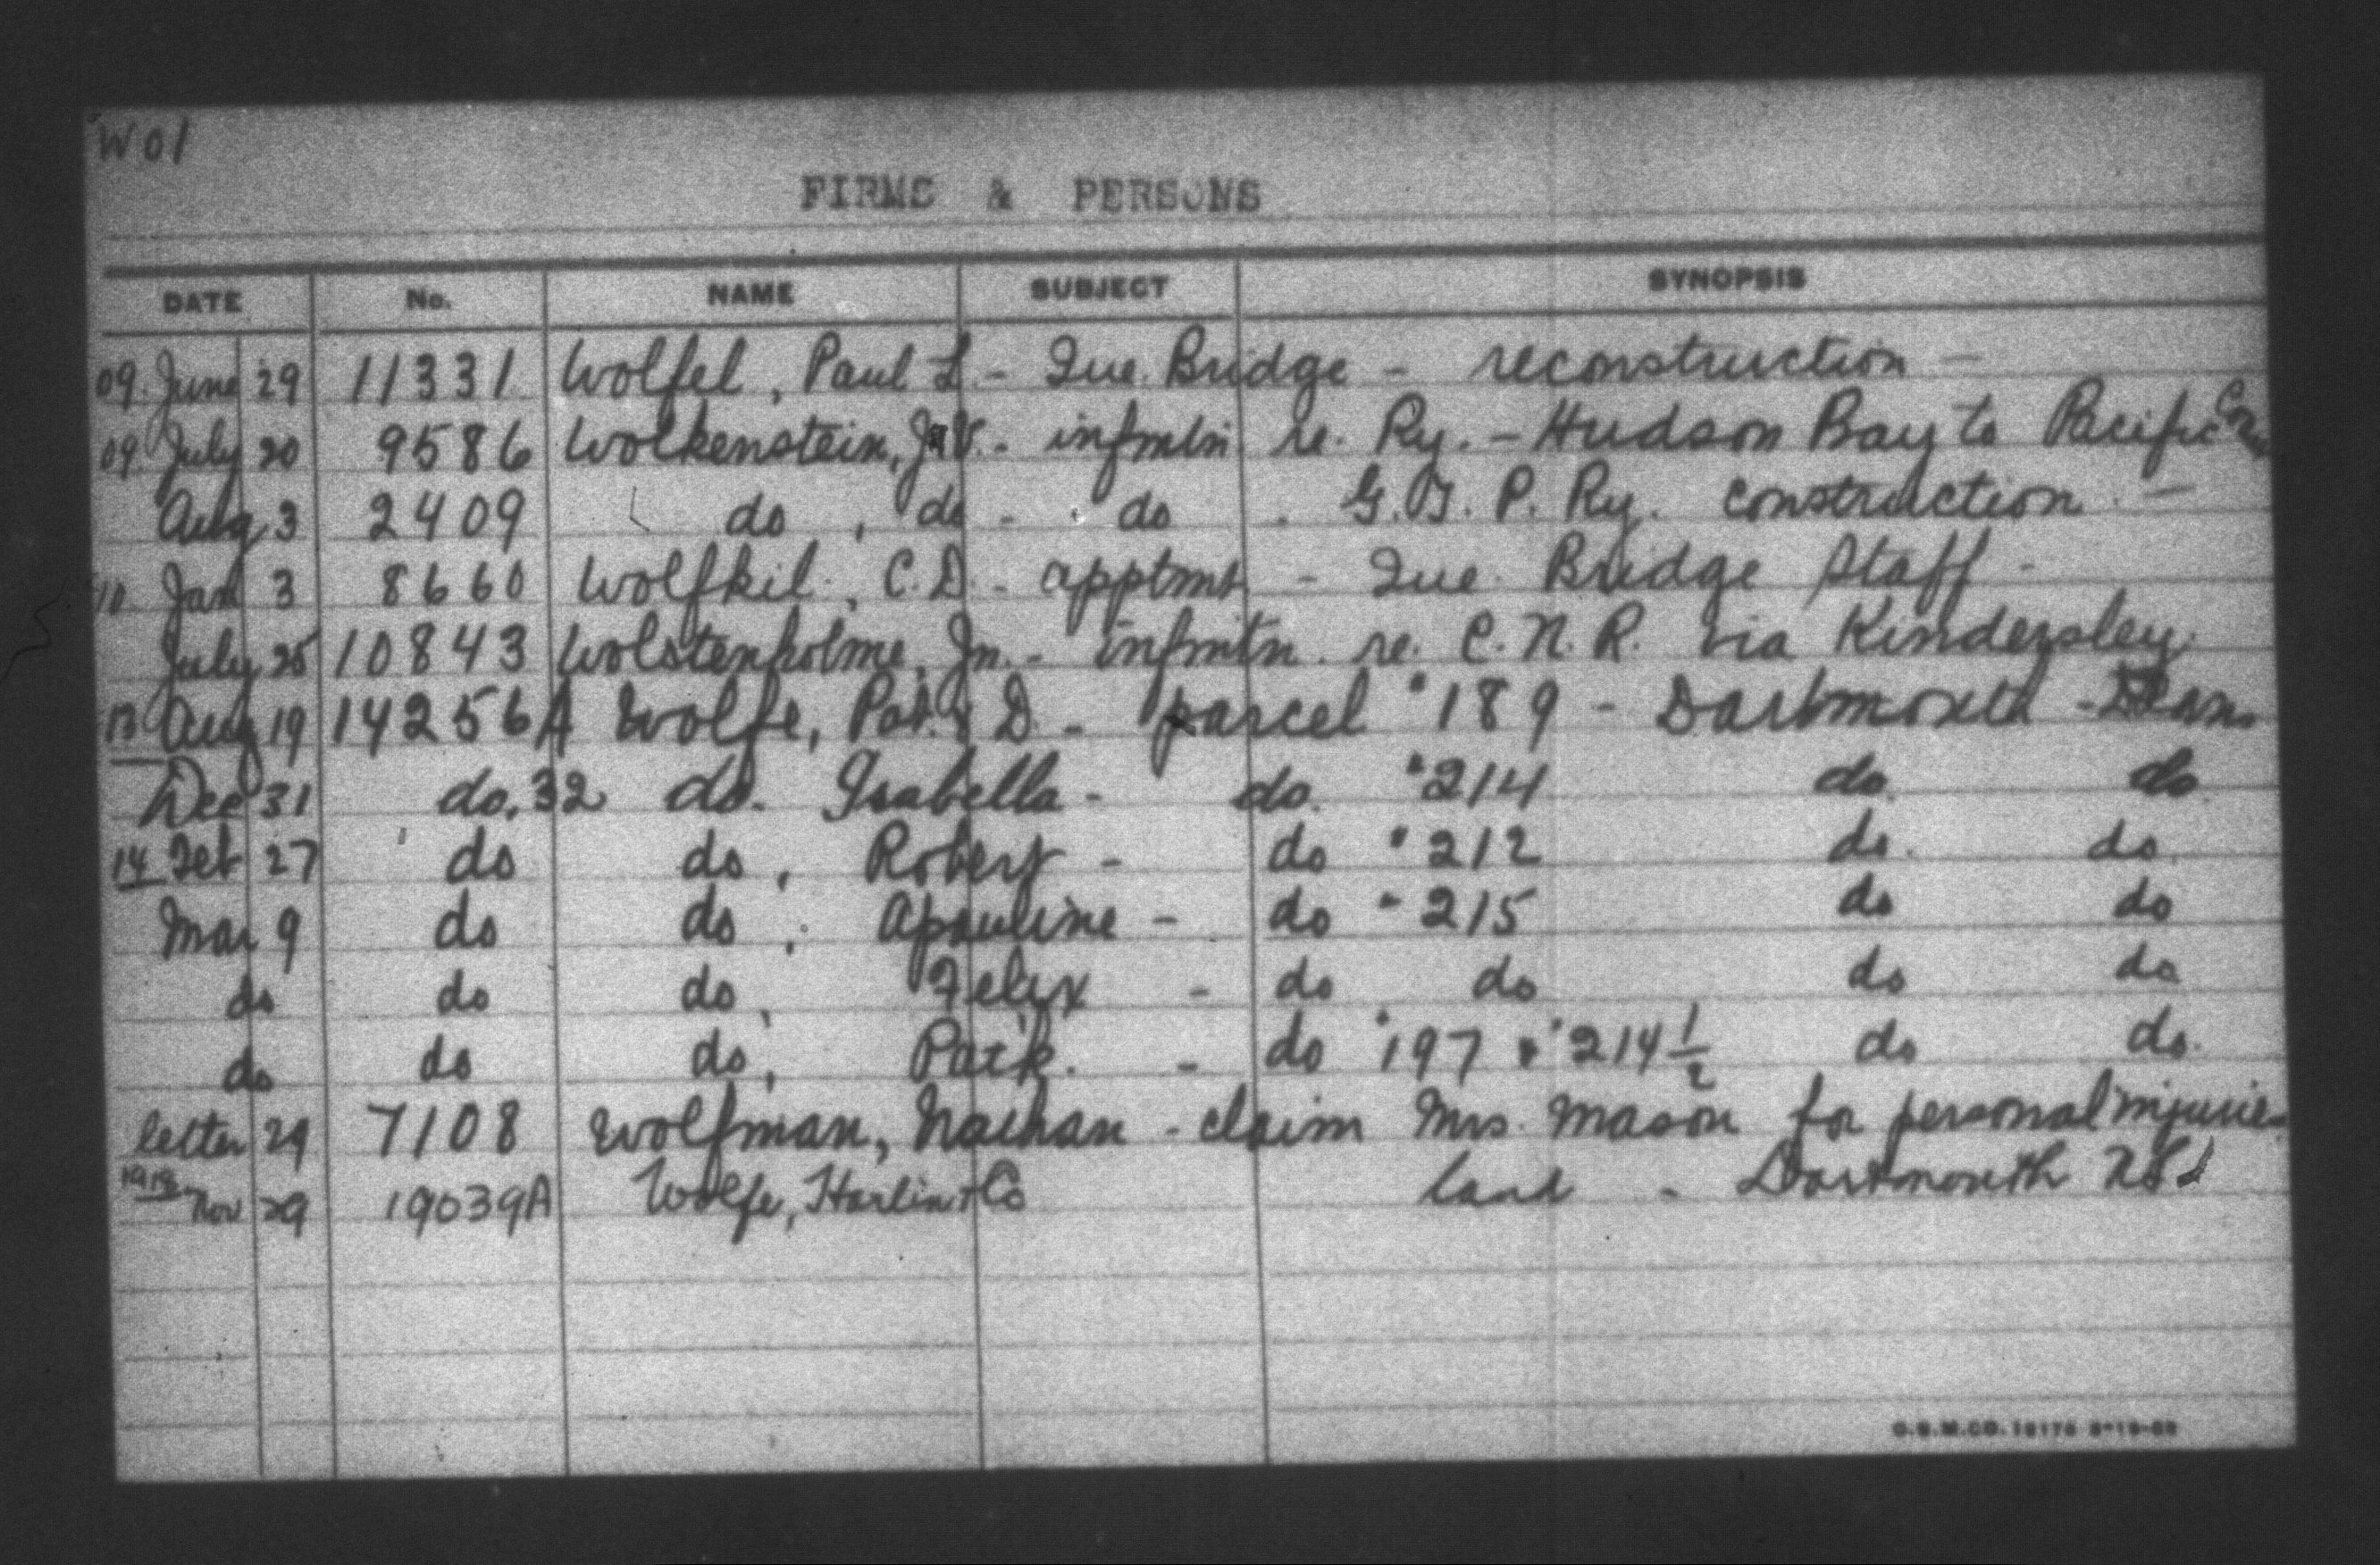 W01
FIRMS & PERSONS
DATE No. NAME SUBJECT SYNOPSIS
09. June 29 11331 Wolfel, Paul L. - Que. Bridge - reconstruction -
09. July 20 9586 Wolkenstein, - infmtn re. Ry. - Hudson Bay to Pacific
Aug 3 2409 do, do - do . G.T.P. Ry. construction -
10. Jan 3 8660 Wolfkil, C.D. - apptmt - Que. Bridge Staff -
July 25 10843 Wolstenholme, Jn. - infmtn. re. C.N.R. via Kindersley
13 Aug 19 14256A Wolfe, Pat. & D. - parcel "189 - Dartmouth -
Dec 31 do. 32 do. Isabella - do. "214 do. do
14 Feb 27 do do, Robert - do "212 do. do
Mar 9 do do, Apauline - do "215 do do
do do do, Felix - do do do do
do do do, Patk. - do "197 & "214 1/2 do do.
letter 29 7108 Wolfman, Nathan - claim Mrs. Mason for personal injuries
1918 Nov 29 19039A Wolfe, Harlin & Co land - Dartmouth NS